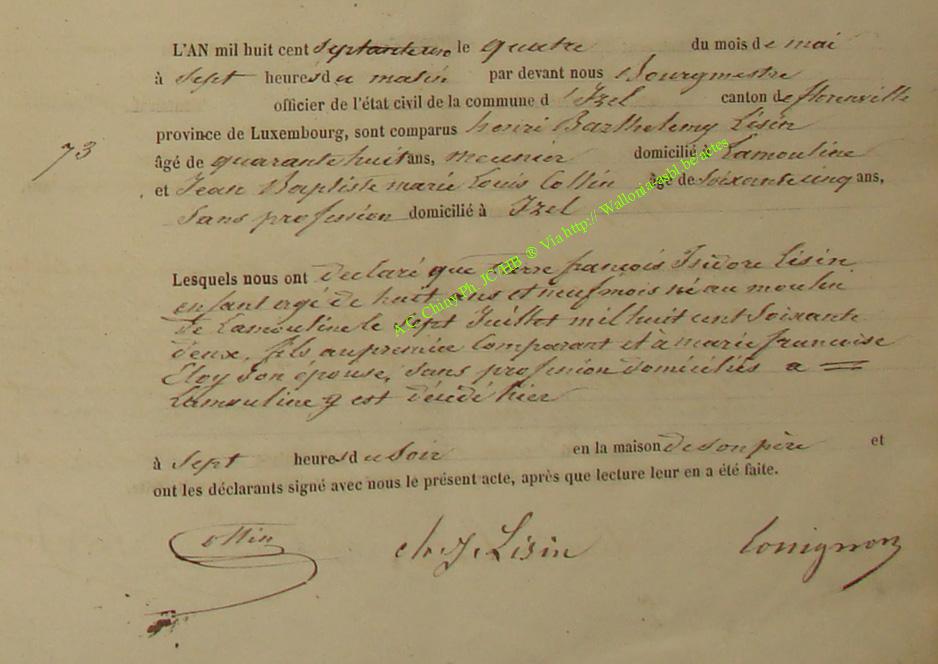 L'AN mil huit cent septante un le quatre du mois de mai
à sept heures du matin par devant nous Bourgmestre
officier de l'état civil de la commune d'Izel canton de florenville
province de Luxembourg, sont comparus henri Barthelemy Lisin
73
âgé de quarante huit ans, meunier domicilié à Lamouline
et Jean Baptiste marie Louis Collin âgé de soixante cinq ans,
Sans profession domicilié à Izel
Lesquels nous ont declaré que Pierre françois Isidore Lisin
enfant agé de huit ans et neuf mois né au moulin
de Lamouline le sept Juillet mil huit cent soixante
deux, fils au premier Comparant et à marie francoise
Eloy son epouse, sans profession domiciliés a =
Lamouline y est décédé hier
à sept heures du Soir en la maison de son père et
ont les déclarants signé avec nous le présent acte, après que lecture leur en a été faite.
Collin Lisin
A.C. Chiny Ph. JC HB ® Via http:// Wallonia-asbl.be/actes